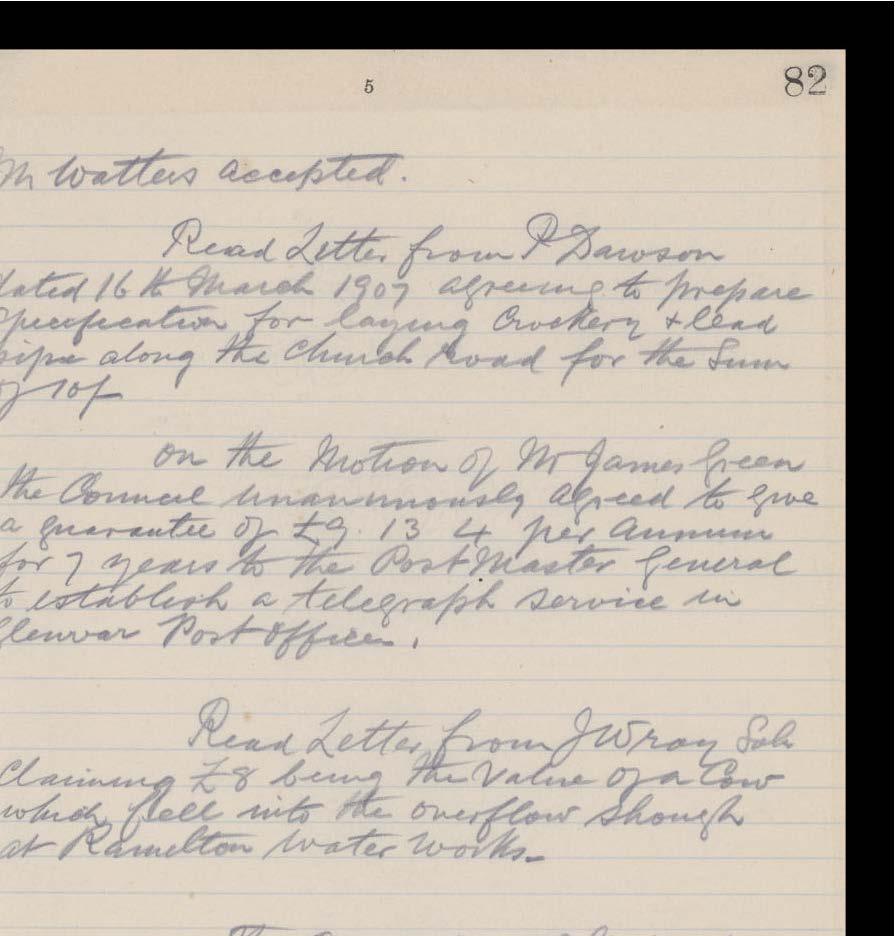 5
82
Mr Watters accepted.
Read Letter from P Dawson
dated 16th March 1907 agreeing to prepare
Specification for laying Crockery + lead
pipe along the Church Road for the Sum
of 10/-
on the Motion of Mr James Green
the Council unanimously agreed to give
a guarantee of £9. 13 4 per Annum
for 7 years to the Post Master General
to establish a telegraph service in
Glenvar Post Office.
Read Letter from J Wray Solr
Claiming £8 being the Value of a Cow
which fell into the overflow Shough
at Ramelton Water Works.